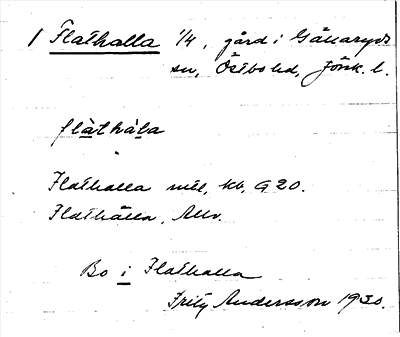 1 Flathalla 1/4, gård i Gällaryds
sn, Östbo hd, Jönk. l.
flàthàla
Flathalla mtl, kb, G20.
Flathälla, Allv.
Bo i Flathalla
Fritz Andersson 1930.